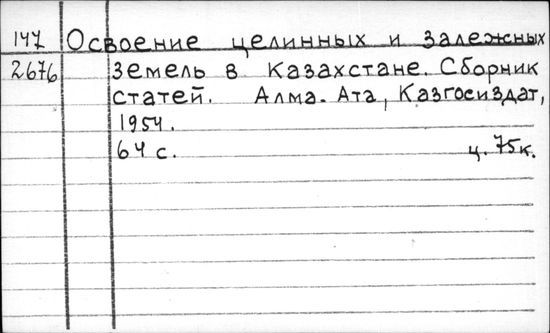 147 Освоение целинных и залежных
2676 земель в Казахстане. Сборник
статей. Алма-Ата, Казгосиздат,
1954.
64 с. ц. 75к.